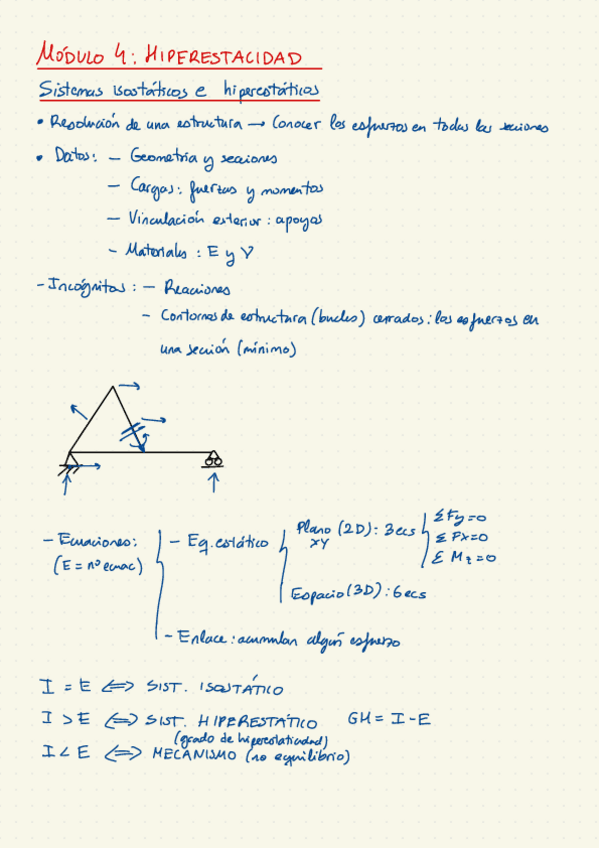 MÓDULO 4: HIPERESTACIDAD
Sistemas isostáticos e hiperestáticos
• Resolución de una estructura → Conocer los esfuerzos en todas las secciones
• Datos: - Geometría y secciones
- Cargas: fuerzas y momentos
- Vinculación exterior: apoyos
- Materiales: E y ν
- Incógnitas: - Reacciones
- Contornos de estructura (bucles) cerrados: los esfuerzos en
una sección (mínimo)
- Ecuaciones:
(E = nº ecuac)
- Eq. estático
Plano (2D): 3 ecs
XY
ΣFy=0
ΣFx=0
ΣMz=0
Espacio (3D): 6 ecs
- Enlace: acumulan algún esfuerzo
I = E ⟺ SIST. ISOSTÁTICO
I > E ⟺ SIST. HIPERESTÁTICO GH = I - E
(grado de hiperestaticidad)
I < E ⟺ MECANISMO (no equilibrio)